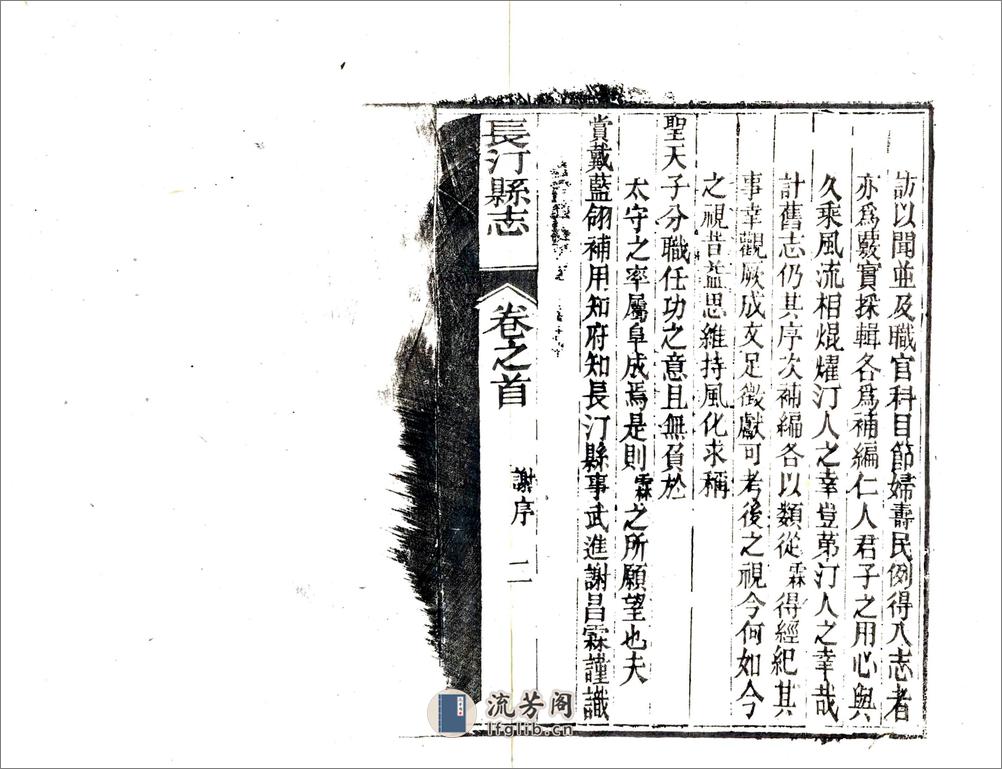 訪以聞並及職官科目節婦壽民例得入志者
亦爲覈實採輯各爲補編仁人君子之用心與
久乘風流相焜燿汀人之幸豈第汀人之幸哉
計舊志仍其序次補編各以類從霖得經紀其
事幸觀厥成文足徵獻可考後之視今何如今
之視昔益思維持風化求稱
聖天子分職任功之意且無負於
太守之率屬阜成焉是則霖之所願望也夫
賞戴藍翎補用知府知長汀縣事武進謝昌霖謹識
長汀縣志
卷之首
謝序
二
流芳阁
lfglib.cn